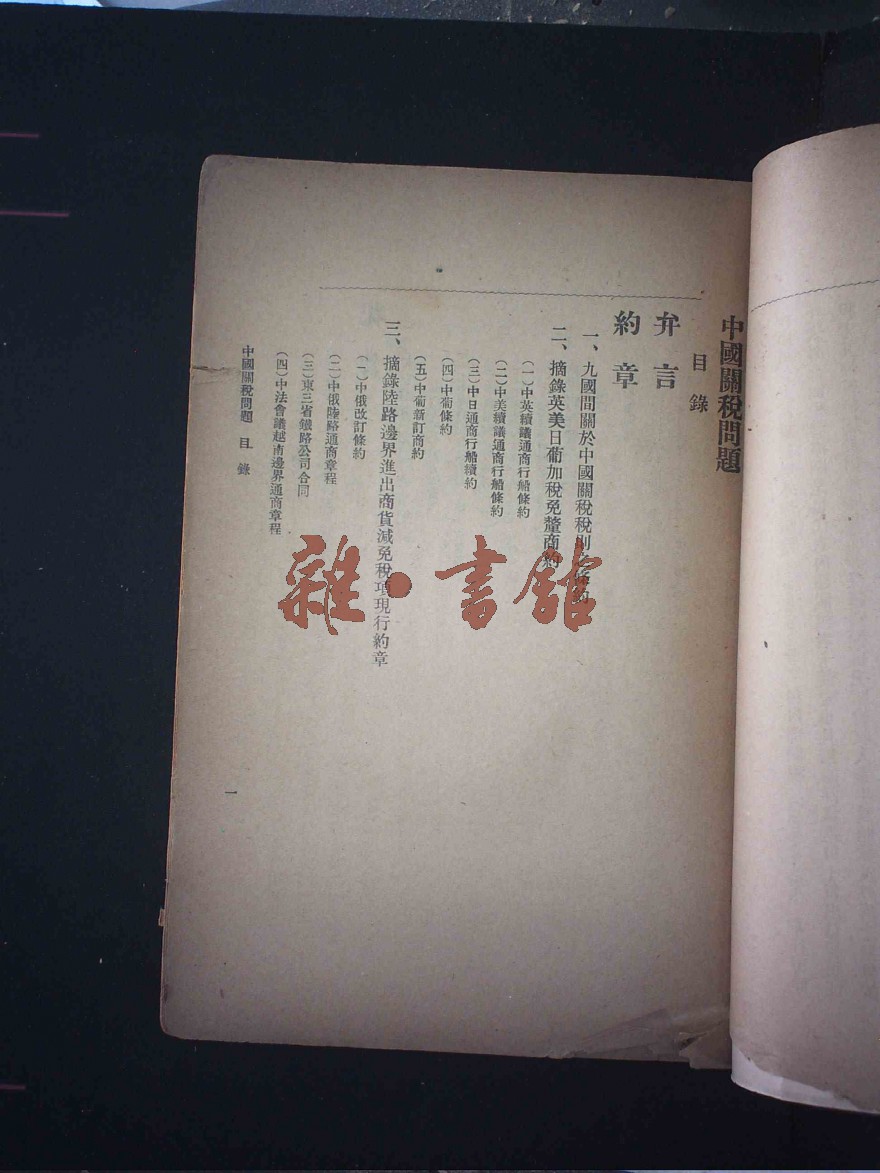 中國關稅問題
目錄
弁言
約章
一、九國間關於中國關稅稅則之條約
二、摘錄英美日葡加稅免釐商約
(一)中英續議通商行船條約
(二)中美續議通商行船條約
(三)中日通商行船續約
(四)中葡條約
(五)中葡新訂商約
三、摘錄陸路邊界進出商貨減免稅項現行約章
(一)中俄改訂條約
(二)中俄陸路通商章程
(三)東三省鐵路公司合同
(四)中法會議越南邊界通商章程
中國關稅問題 目錄
一
雜·書館